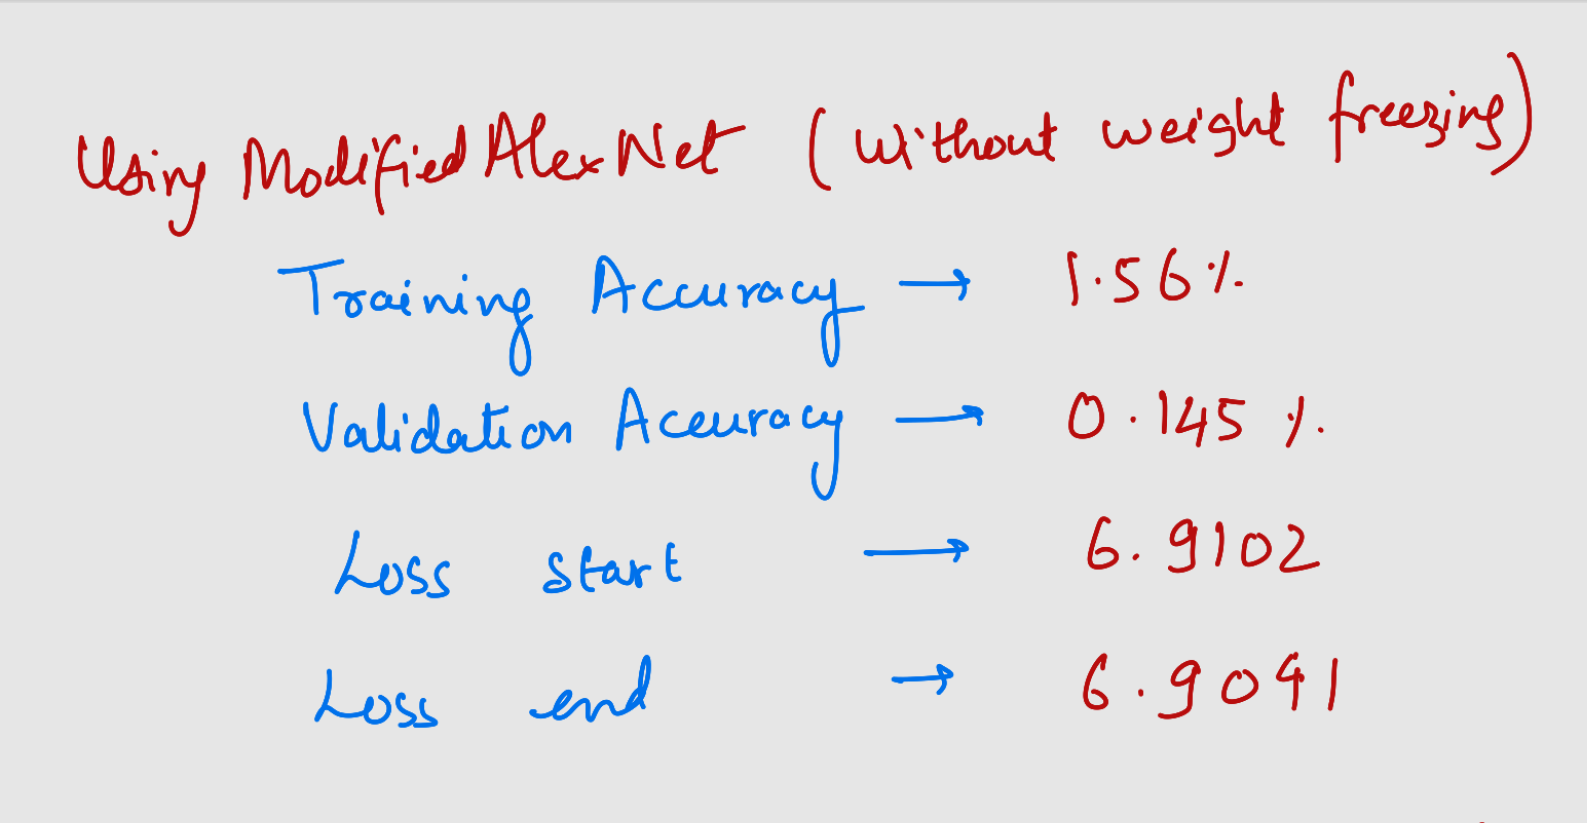 Using Modified AlexNet (without weight freezing)
Training Accuracy → 1.56%
Validation Accuracy → 0.145 %
Loss start → 6.9102
Loss end → 6.9091